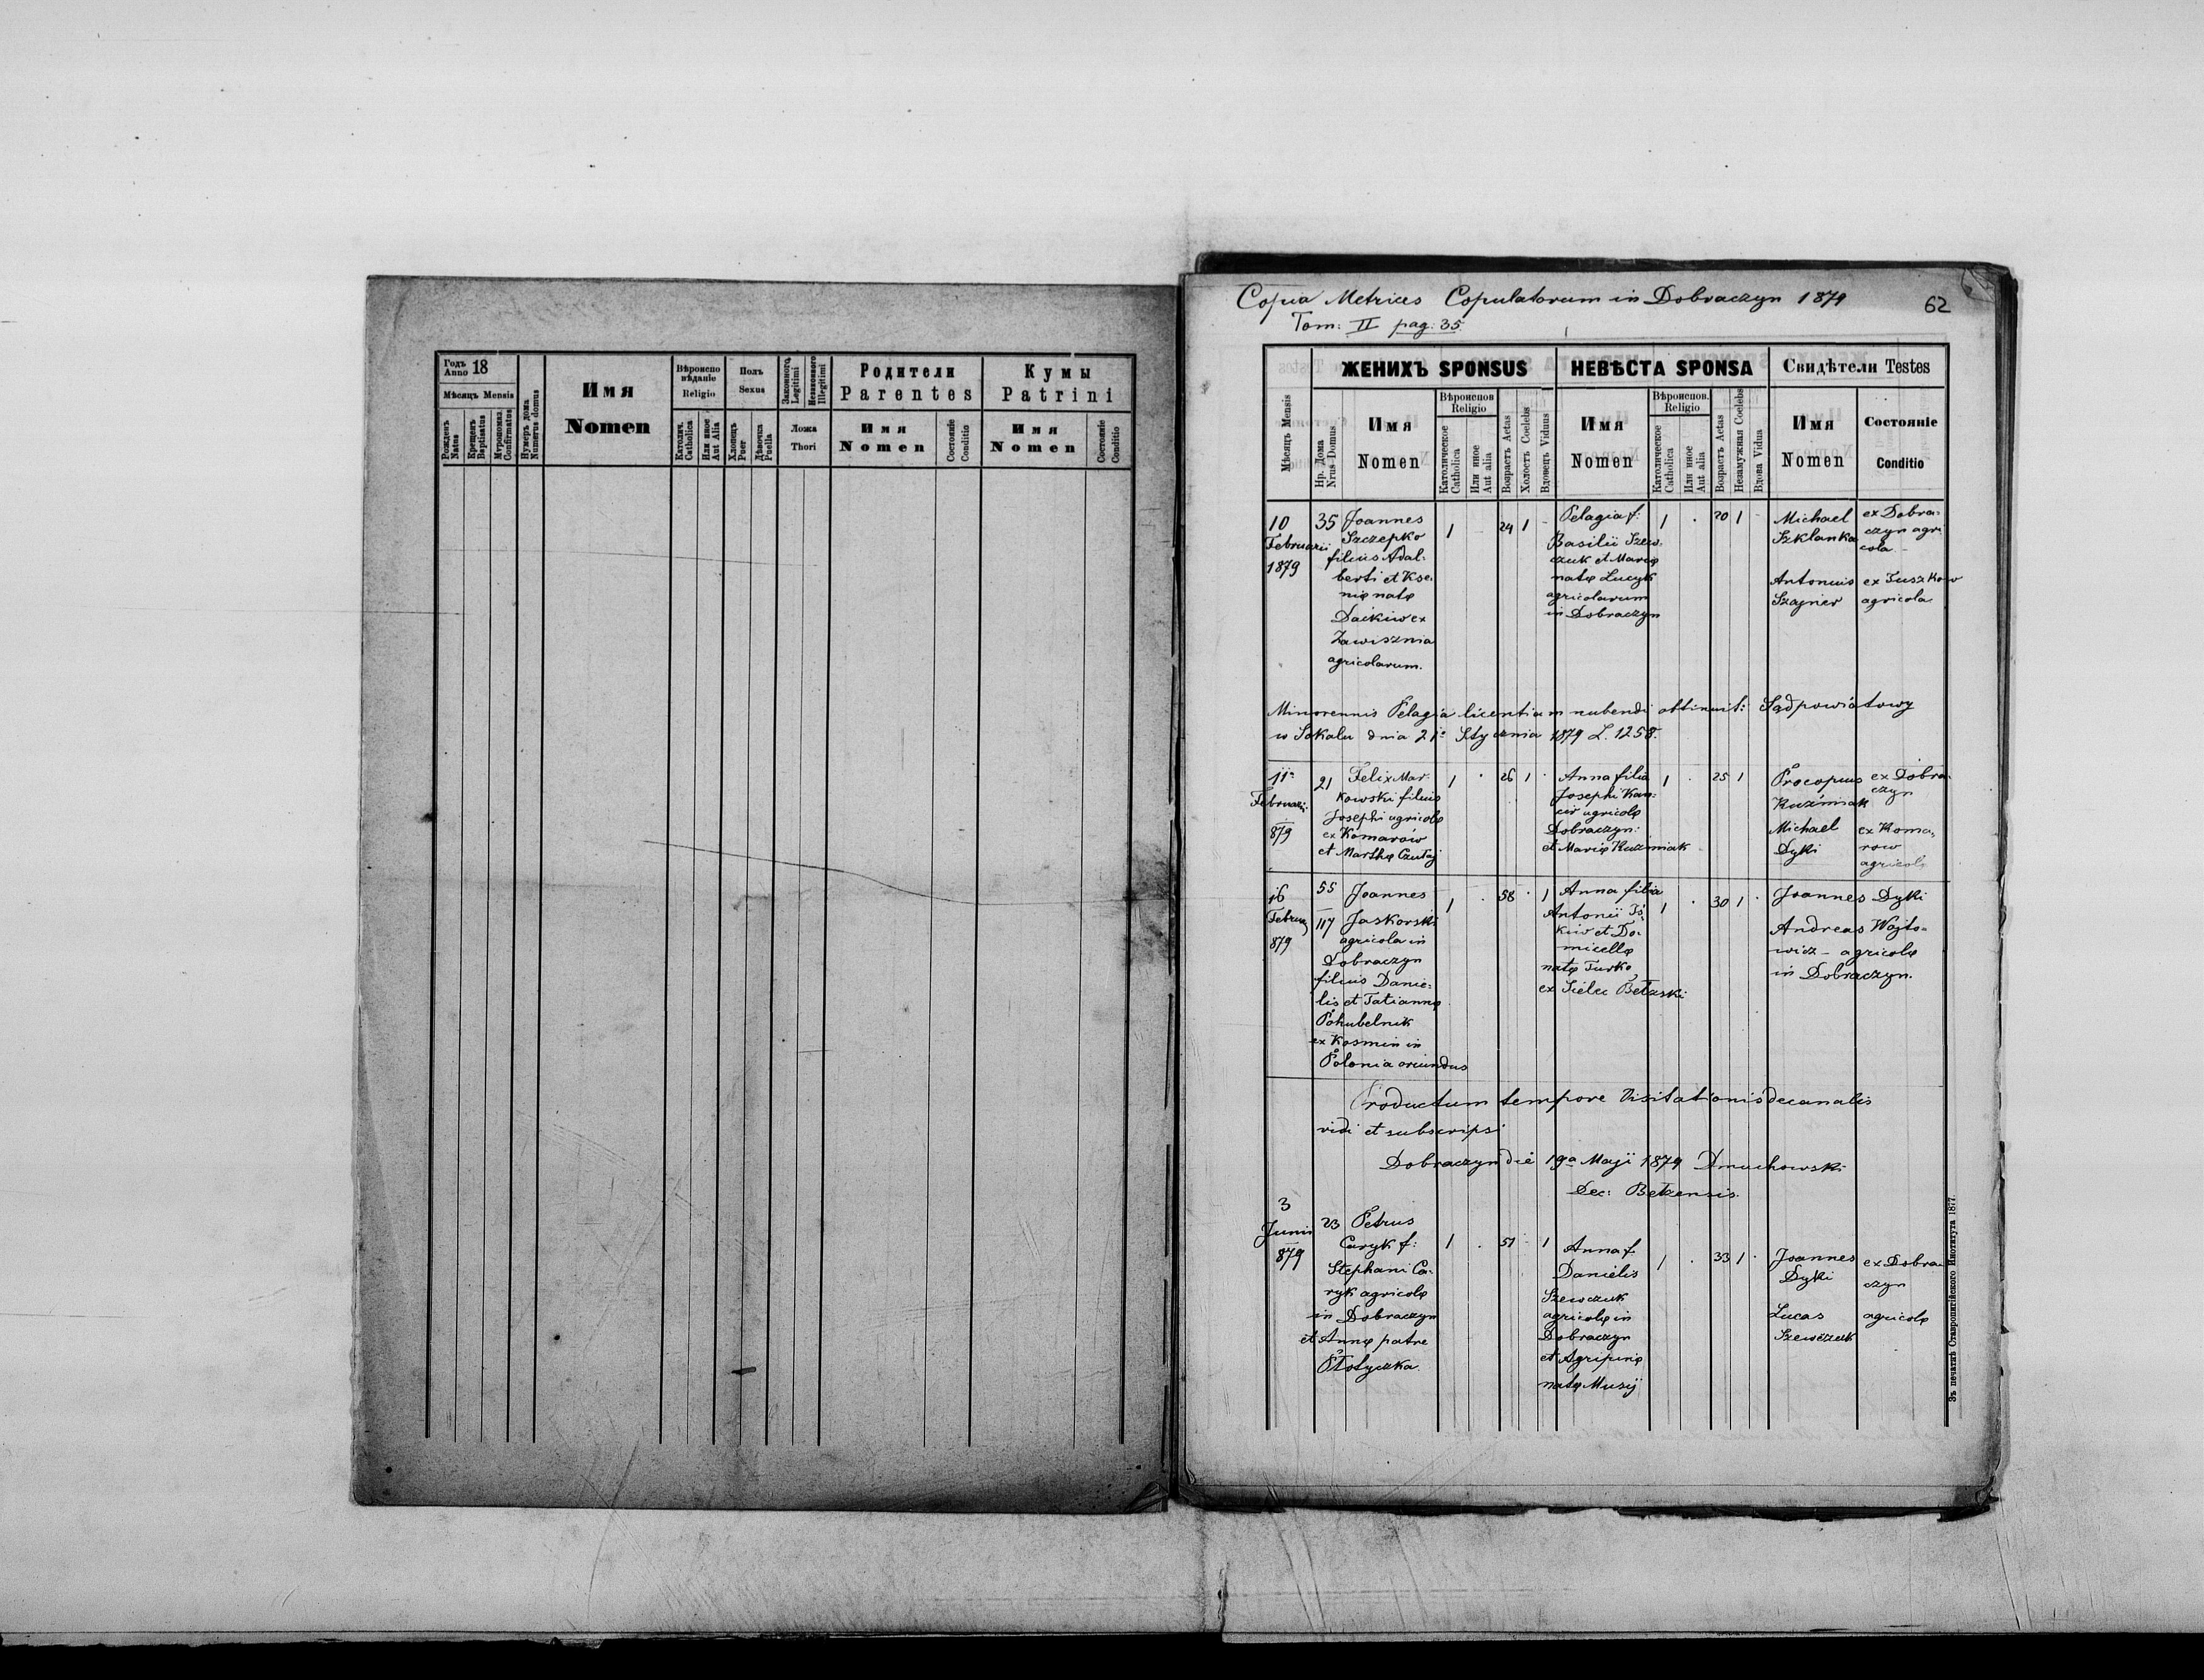 Годъ Anno 18
Мѣсяцъ Mensis
Рожденъ Natus
Крещенъ Baptisatus
Мѵропомаз. Confirmatus
Нумеръ дома Numerus domus
Имя
Nomen
Вѣроиспо вѣданіе
Religio
Католич. Catholica
Или иное Aut Alia
Полъ
Sexus
Хлопецъ Puer
Дѣвочка Puella
Законного Legitimi
Незаконного Illegitimi
Ложа
Thori
Родители
Parentes
Имя
Nomen
Состояніе
Conditio
Кумы
Patrini
Имя
Nomen
Состояніе
Conditio
Copia Metrices Copulatorum in Dobraczyn 1879
62
Tom: II pag. 35.
Мѣсяцъ Mensis
ЖЕНИХЪ SPONSUS
Нр. Дома Nrus Domus
Имя
Nomen
Вѣроиспов
Religio
Католическое Catholica
Или иное Aut alia
Возрастъ Aetas
Холостъ Coelebs
Вдовецъ Viduus
НЕВѢСТА SPONSA
Имя
Nomen
Вѣроиспов.
Religio
Католическое Catholica
Или иное Aut alia
Возрастъ Aetas
Незамужная Coelebs
Вдова Vidua
Свидѣтели Testes
Имя
Nomen
Состояніе
Conditio
10
Februarii
1879
35
Joannes
Szczepko
filius Adal-
berti et Kse-
niæ natæ
Dackiw ex
Zawisznia
agricolarum.
1
24
1
Pelagia f:
Basilii Szew-
czuk et Mariæ
natæ Lucyk
agricolarum
in Dobraczyn
1
20
1
Michael
Szklanka
ex Dobra-
czyn agri
cola.
Antonius
Szajner
ex Tuszkow
agricola
Minorennis Pelagia licentiam nubendi obtinuit: Sąd powiatowy
w Sokalu dnia 21º Stycznia 1879 L. 1258.
11ª
Februarii
879
21
Felix Mar-
kowski filius
Josephi agricolæ
ex Komarów
et Marthæ Czutaj
1
26
1
Anna filia
Josephi Kan-
cir agricolæ
Dobraczyn:
et Mariæ Kuzmiak
1
25
1
Procopius
Kuźmiak
ex Dobra-
czyn
Michael
Dyki
ex Koma-
row
agricolæ
16
879
55
117
Joannes
Jaskorski
agricola in
Dobraczyn
filius Danie-
lis et Tatiannæ
Pohubelnik
ex Kosmin in
Polonia oriundus
1
58
1
Anna filia
Antonii
kiw et Do-
micellæ
natæ Turko
ex Sielec Bełzski
1
30
1
Joannes Dyki
Andreas Wojto-
wicz - agricolæ
in Dobraczyn.
Productum tempore Visitationis decanalis
vidi et subscripsi
Dobraczyn die 19a Maji 1879 Dmuchowski
Dec: Bełzensis.
3
Junii
879
23
Petrus
Caryk f:
Stephani Ca-
ryk agricolæ
in Dobraczyn
et Annæ patre
Płotyczka.
1
51
1
Anna f.
Danielis
Szewczuk
agricolæ in
Dobraczyn
et Agripinæ
natæ Musij
1
33
1
Joannes
Dyki
ex Dobra-
czyn
Lucas
Szewczuk
agricolæ
Зъ печатнѣ Ставропигійского Института 1877